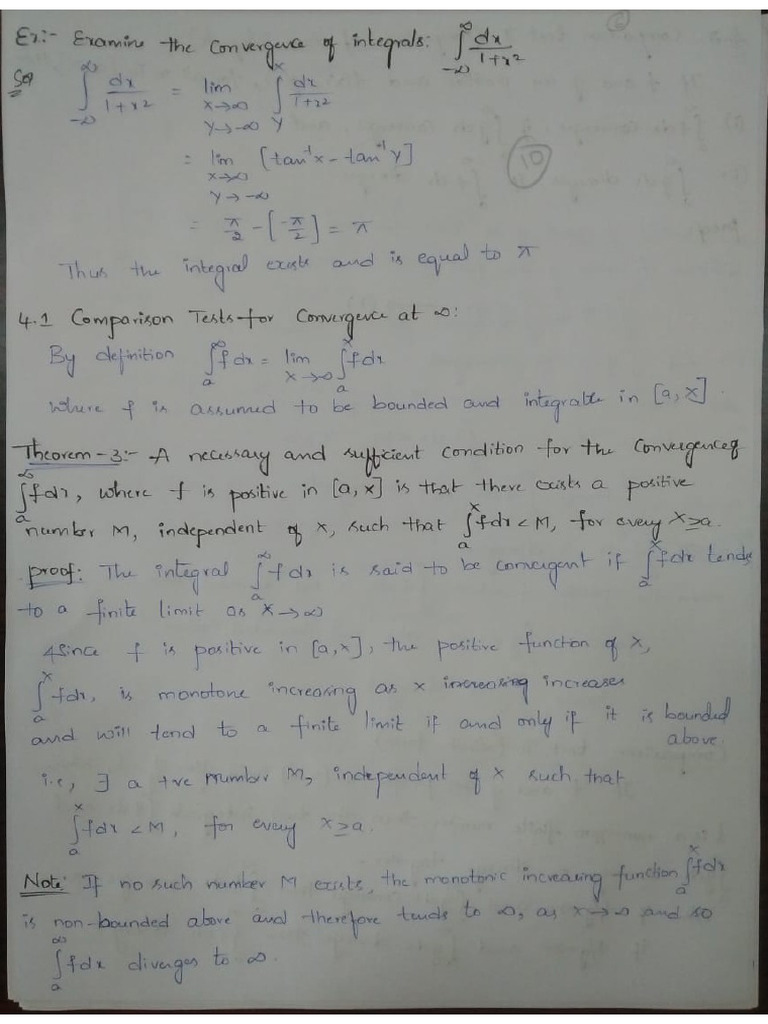 Ex:- Examine the Convergence of integrals: ∫_{-∞}^{∞} dx/1+x²
Sol ∫_{-∞}^{∞} dx/1+x² = lim_{x→∞, y→-∞} ∫_{y}^{x} dx/1+x²
= lim_{x→∞, y→-∞} [tan⁻¹x - tan⁻¹y]
10
= π/2 - [-π/2] = π
Thus the integral exists and is equal to π
4.1 Comparison Tests for Convergence at ∞:
By definition ∫_{a}^{∞} f dx = lim_{x→∞} ∫_{a}^{x} f dx
where f is assumed to be bounded and integrable in [a, x].
Theorem-3:- A necessary and sufficient condition for the Convergence of
∫_{a}^{∞} f dx, where f is positive in [a, x] is that there exists a positive
number M, independent of x, such that ∫_{a}^{x} f dx < M, for every x ≥ a.
proof: The integral ∫_{a}^{∞} f dx is said to be convergent if ∫_{a}^{x} f dx tends
to a finite limit as x→∞
Since f is positive in [a, x], the positive function of x,
∫_{a}^{x} f dx, is monotone increasing as x increasing increases
and will tend to a finite limit if and only if it is bounded
above.
i.e, ∃ a +ve number M, independent of x such that
∫_{a}^{x} f dx < M, for every x ≥ a.
Note: If no such number M exists, the monotonic increasing function ∫_{a}^{x} f dx
is non-bounded above and therefore tends to ∞, as x→∞ and so
∫_{a}^{∞} f dx diverges to ∞.